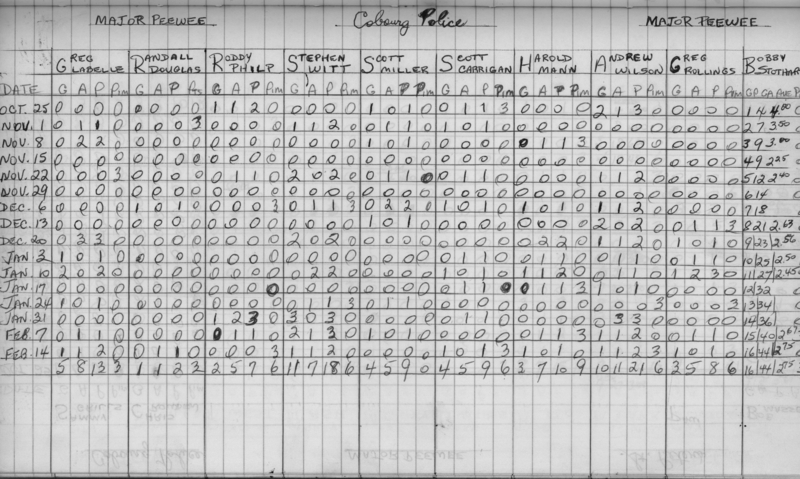 MAJOR PEEWEE Cobourg Police MAJOR PEEWEE
GREG RANDALL RODDY STEPHEN SCOTT SCOTT HAROLD ANDREW GREG BOBBY
LABELLE DOUGLAS PHILP WITT MILLER CARRIGAN MANN WILSON ROLLINGS STOTHAR
DATE G A P Pim G A P G A P Pim G A P Pim G A P Pim G A P Pim G A P Pim G A P Pim G A P Pim GP GA AVE
OCT. 25 0 0 0 0 0 0 0 0 1 1 2 0 0 0 0 0 1 0 1 0 0 1 1 3 0 0 0 0 2 1 3 0 0 0 0 0 1 4 4.00
NOV. 1 0 1 1 0 0 0 0 3 0 0 0 0 1 1 2 0 0 1 1 0 1 0 1 0 0 0 0 0 0 0 0 0 0 0 0 0 2 7 3.50
NOV. 8 0 2 2 0 0 0 0 0 0 0 0 0 0 0 0 0 1 0 1 0 0 0 0 0 0 1 1 3 0 0 0 0 0 0 0 0 3 9 3.00
NOV. 15 0 0 0 0 0 0 0 0 0 0 0 0 0 0 0 0 0 0 0 0 0 0 0 0 0 0 0 0 0 0 0 0 0 0 0 0 4 9 2.25
NOV. 22 0 0 0 3 0 0 0 0 0 1 1 0 2 0 2 0 0 1 1 0 0 1 1 0 0 0 0 0 1 1 2 0 0 0 0 0 5 12 2.40
NOV. 29 0 0 0 0 0 0 0 0 0 0 0 0 0 0 0 0 0 0 0 0 0 0 0 0 0 0 0 0 0 0 0 0 0 0 0 0 6 14
DEC. 6 0 0 0 0 1 0 1 0 0 0 0 3 0 1 1 3 0 2 2 0 1 0 1 0 1 0 1 0 1 1 2 0 0 0 0 0 7 18
DEC. 13 0 0 0 0 0 0 0 0 0 0 0 0 0 0 0 0 1 0 1 0 0 0 0 0 0 0 0 0 2 0 2 0 0 1 1 3 8 21 2.63
DEC. 20 0 3 3 0 0 0 0 0 0 0 0 0 2 0 2 0 0 0 0 0 0 0 0 0 0 2 2 0 1 1 2 0 1 0 1 0 9 23 2.56
JAN. 3 1 0 1 0 0 0 0 0 0 0 0 0 0 0 0 0 0 0 0 0 0 1 1 0 0 1 1 0 0 1 1 0 0 1 1 0 10 25 2.50
JAN. 10 2 0 2 0 0 0 0 0 0 0 0 0 0 2 2 0 0 0 0 0 1 0 1 0 1 1 2 0 0 1 1 0 1 2 3 0 11 27 2.45
JAN. 17 0 0 0 0 0 0 0 0 0 0 0 0 0 0 0 0 0 0 0 0 0 1 1 0 0 1 1 3 1 0 1 0 0 0 0 0 12 32
JAN. 24 1 0 1 0 0 0 0 0 0 0 0 0 0 1 1 3 0 1 1 0 0 0 0 0 0 0 0 0 0 0 0 3 0 0 0 3 13 34
JAN. 31 0 0 0 0 0 0 0 0 1 2 3 0 3 0 3 0 0 0 0 0 0 1 1 0 0 0 0 0 0 3 3 0 0 0 0 0 14 36
FEB. 7 0 1 1 0 0 0 0 0 0 1 1 0 2 1 3 0 1 0 1 0 0 0 0 0 0 1 1 3 1 1 2 0 0 1 1 0 15 40 2.67
FEB. 14 1 1 2 0 0 1 1 0 0 0 0 3 1 1 2 0 0 0 0 0 1 0 1 3 1 0 1 0 1 1 2 3 1 0 1 0 16 44 2.75
5 8 13 3 1 1 2 3 2 5 7 6 11 7 18 6 4 5 9 0 4 5 9 6 3 7 10 9 10 11 21 6 3 5 8 6 16 44 2.75